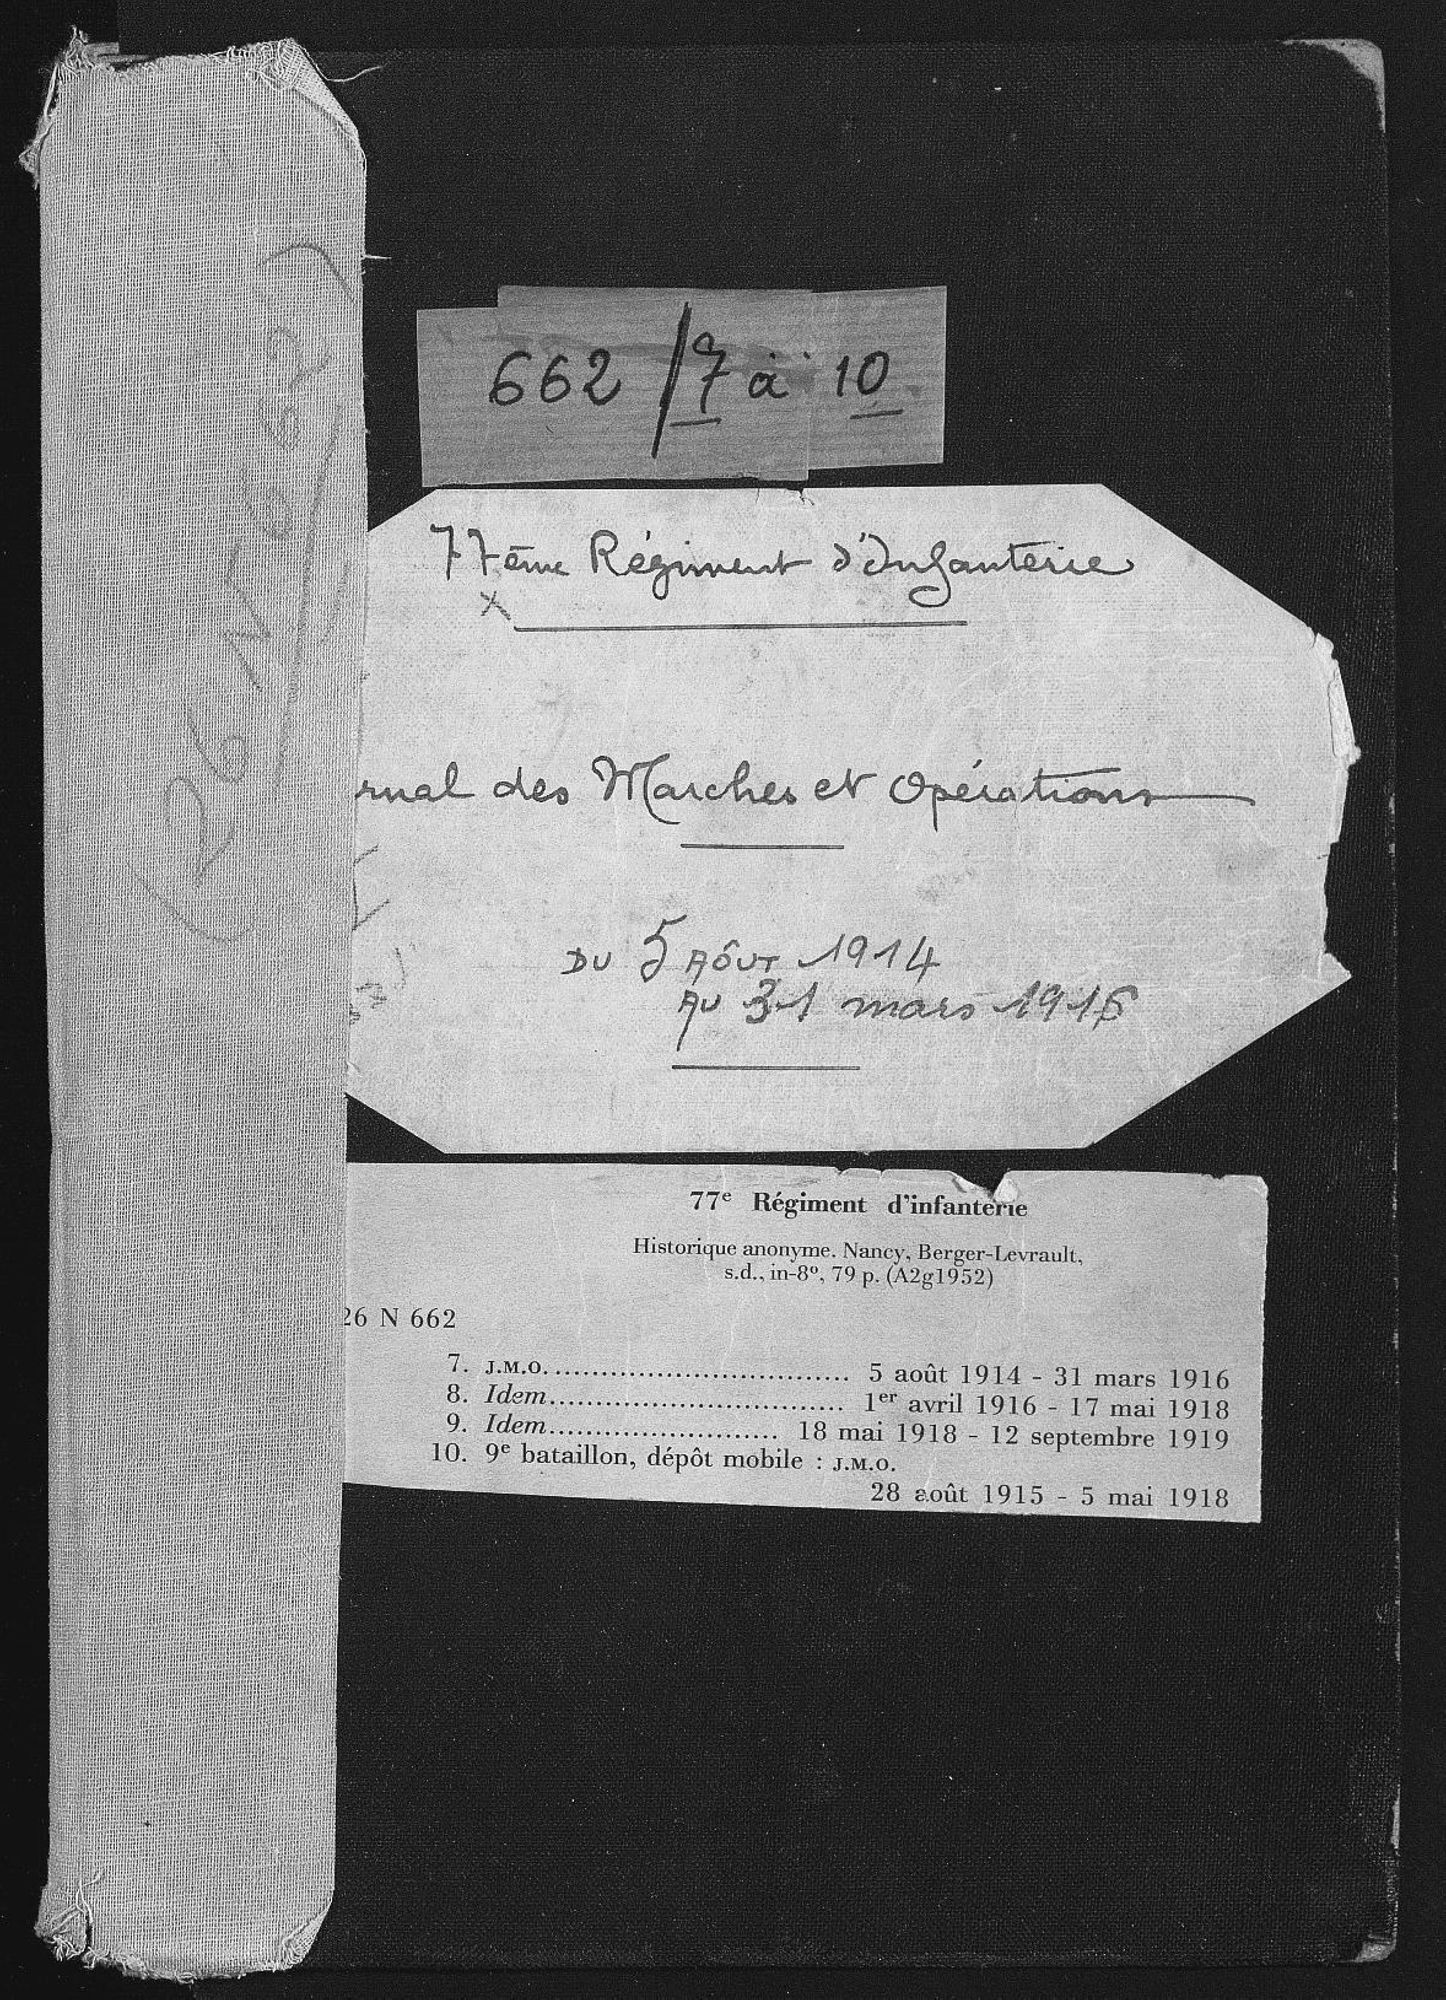 26 N 662
662 / 7 à 10
77ème Régiment d'Infanterie
x
rnal des Marches et Opérations
DU 5 AÔUT 1914
AU 31 mars 1916
77e Régiment d'infanterie
Historique anonyme. Nancy, Berger-Levrault,
s.d., in-8º, 79 p. (A2g1952)
26 N 662
7. J.M.O. ................................ 5 août 1914 - 31 mars 1916
8. Idem ................................ 1er avril 1916 - 17 mai 1918
9. Idem ......................... 18 mai 1918 - 12 septembre 1919
10. 9e bataillon, dépôt mobile : J.M.O.
28 août 1915 - 5 mai 1918